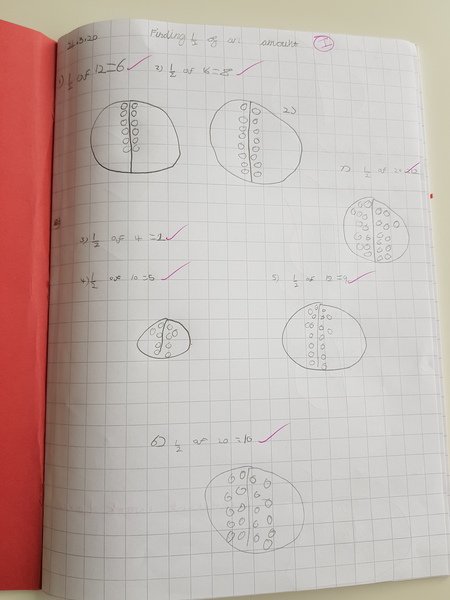 Finding ½ of an amount
1) ½ of 12=6 ½ of 16=8
2)
7) ½ of
3) ½ of 4 =2
4) ½ of 10=5 5) ½ of 18=9
6) ½ of 20=10